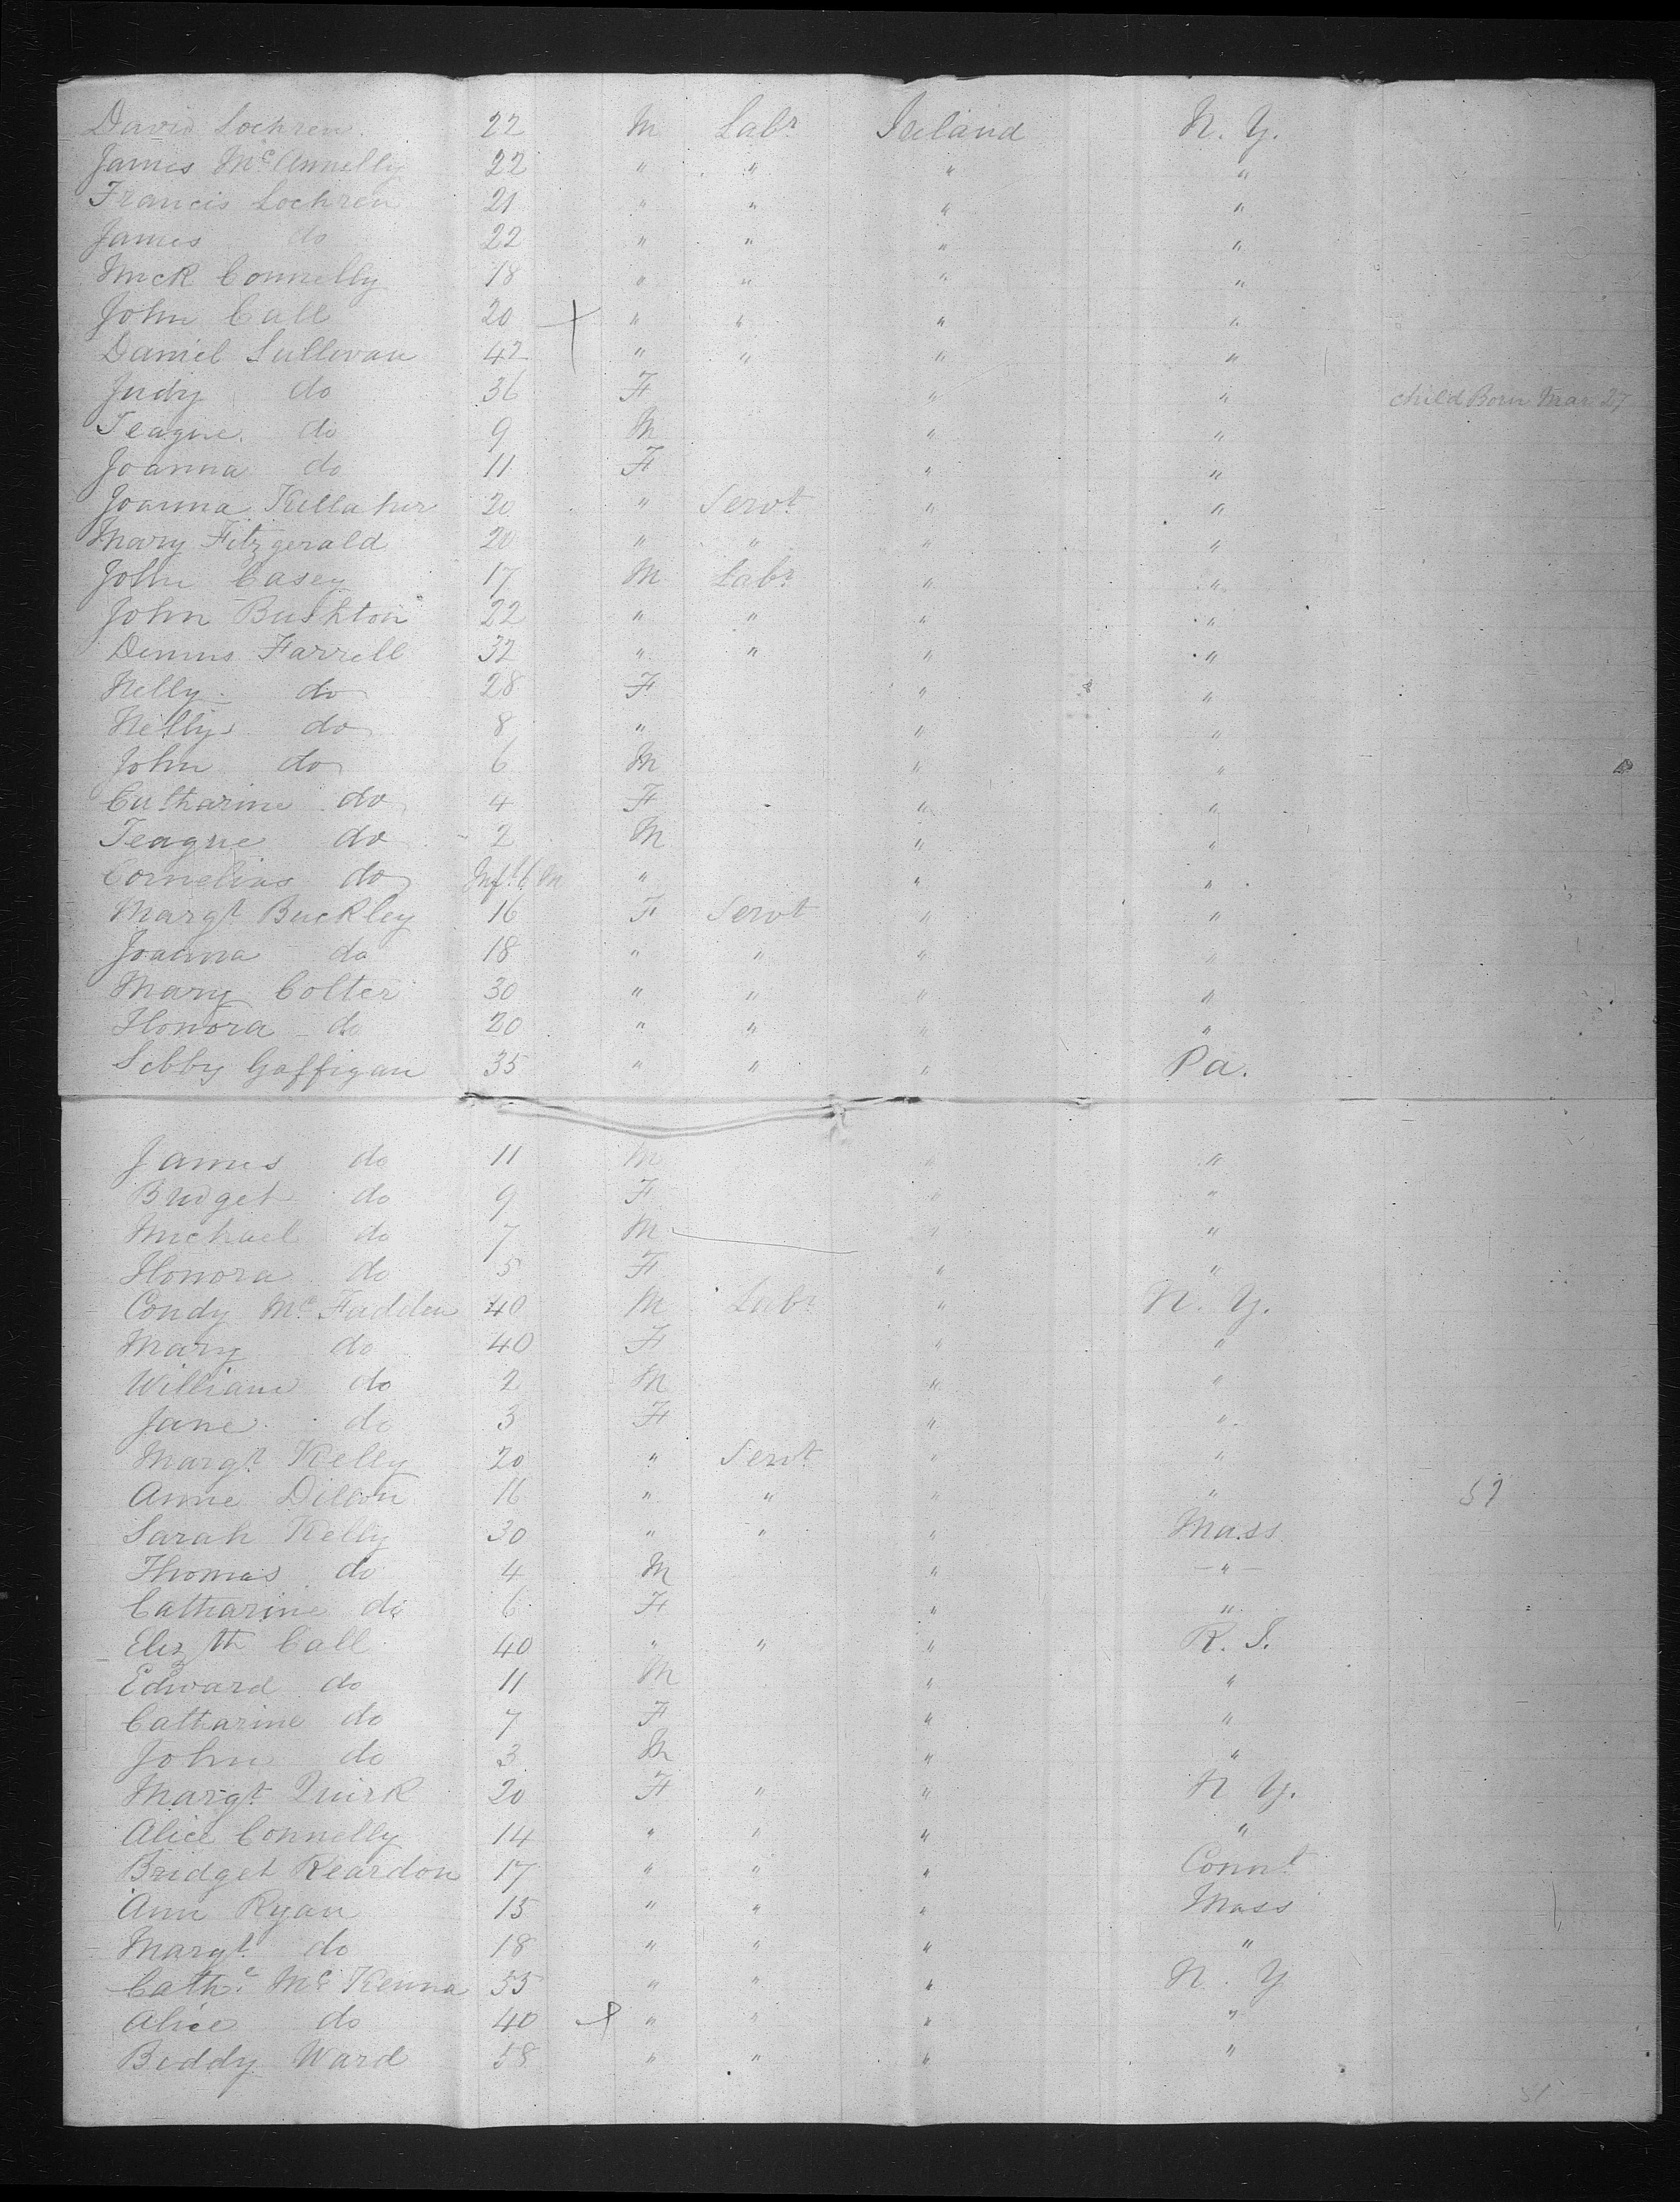 David Lochren 22 M Labr Ireland N. Y.
James McAnnelly 22 " " " "
Francis Lochren 21 " " " "
James do 22 " " " "
Mick Connelly 18 " " " "
John Call 20 " " " "
Daniel Sullivan 42 " " " "
Judy do 36 F " " Child Born Mar 27
Teague do 9 M " "
Joanna do 11 F " "
Joanna Kellaher 20 " Servt " "
Mary Fitzgerald 20 " " " "
John Casey 17 M Labr " "
John Bushton 22 " " " "
Dennis Farrell 32 " " " "
Nelly do 28 F " "
Nelly do 8 " " "
John do 6 M " "
Catharine do 4 F " "
Teague do 2 M " "
Cornelius do Inft 6 m " " "
Margt Buckley 16 F Servt " "
Joanna do 18 " " " "
Mary Colter 30 " " " "
Honora do 20 " " " "
Sebby Gaffigan 35 " " " Pa.
James do 11 M " "
Bridget do 9 F " "
Michael do 7 M " "
Honora do 5 F " "
Condy McFadden 40 M Labr " N. Y.
Mary do 40 F " "
William do 2 M " "
Jane do 3 F " "
Margt Kelly 20 " Servt " "
Anne Dillon 16 " " " "
Sarah Kelly 30 " " " Mass
Thomas do 4 M " "
Catharine do 6 F " "
Elizth Call 40 " " " R. I.
Edward do 11 M " "
Catharine do 7 F " "
John do 3 M " "
Margt Quirk 20 F " " N Y.
Alice Connelly 14 " " " "
Bridget Reardon 17 " " " Connt
Ann Ryan 15 " " " Mass
Margt do 18 " " " "
Cathe McKenna 55 " " " N. Y
Alice do 40 " " " "
Biddy Ward 58 " " " "
51